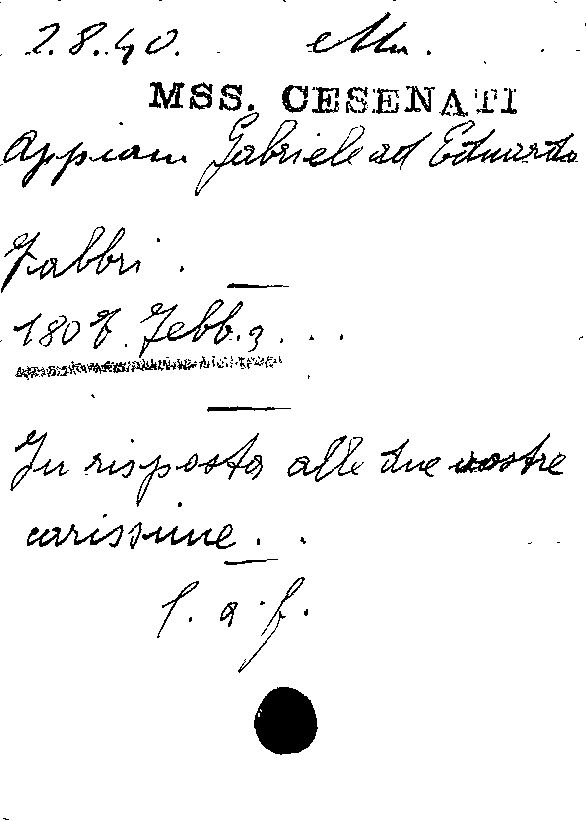 2.8.40.
MSS. CESENATI
Appiani Gabriele ad Eduardo
Fabbri.
1807. Febb. 3...
In risposta alle due vostre
carissime...
l. a. f.